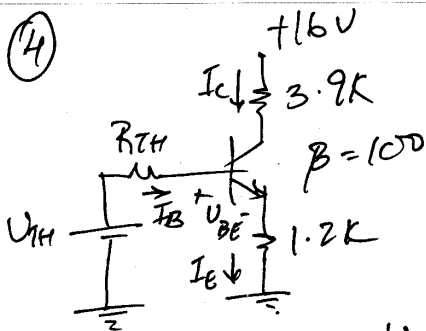 4
+16V
Ic 3.9K
RTH
β=100
IB + VBE -
VTH
1.2K
IE